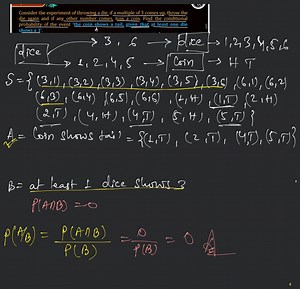 Consider the experiment of throwing a die, if a multiple of 3 comes up, throw the
die again and if any other number comes, toss a coin. Find the conditional
probability of the event 'the coin shows a tail', given that at least one die
shows a 3
dice → 3, 6 → dice → 1, 2, 3, 4, 5, 6
→ 1, 2, 4, 5 → Coin → H T
S = { (3,1), (3,2), (3,3), (3,4), (3,5), (3,6), (6,1), (6,2)
(6,3), (6,4), (6,5), (6,6), (1,H), (1,T), (2,H)
(2,T), (4,H), (4,T), (5,H), (5,T) }
A = Coin shows tail = {(1,T), (2,T), (4,T), (5,T)
B = at least 1 dice shows 3
P(A∩B) = 0
P(A/B) = P(A∩B) / P(B) = 0 / P(B) = 0